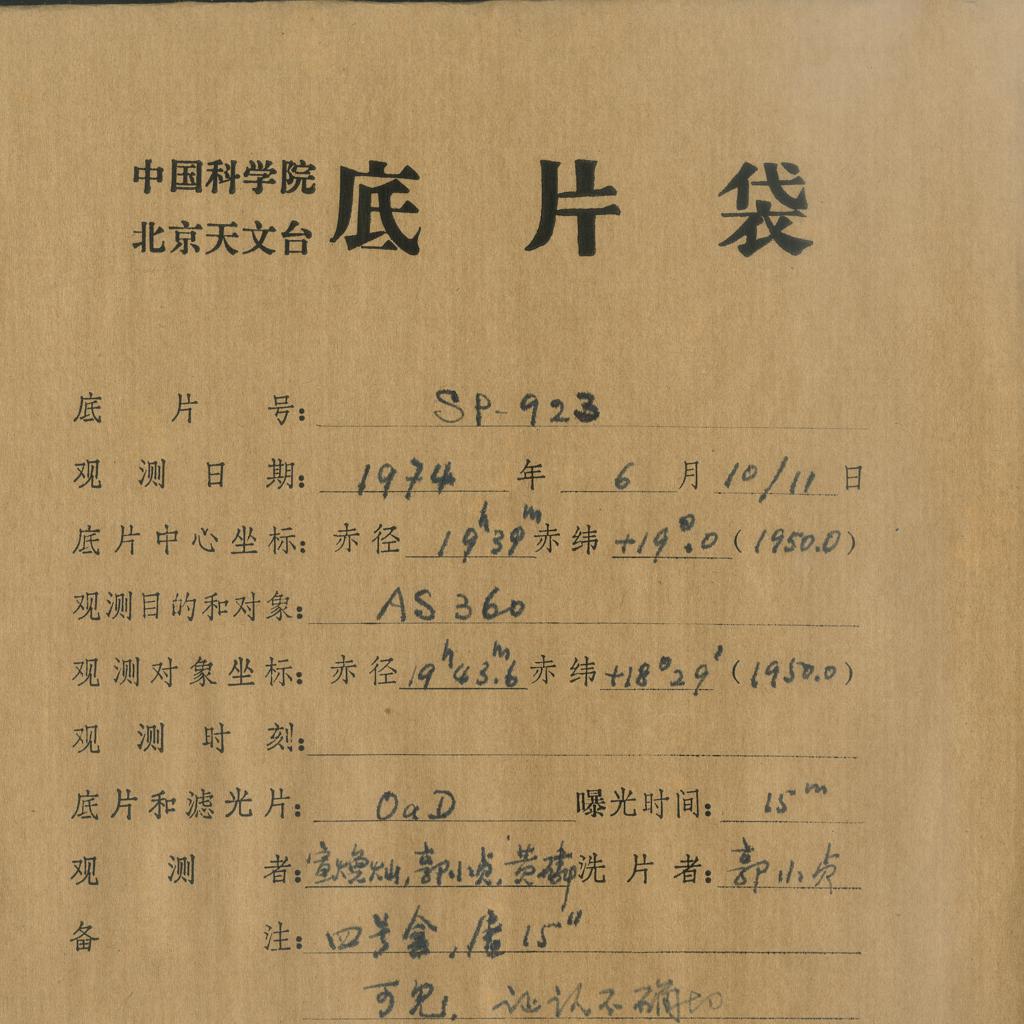 中国科学院
北京天文台
底片袋
底片号: SP-923
观测日期: 1974年 6月 10/11日
底片中心坐标: 赤径 19h39m 赤纬 +19°.0 (1950.0)
观测目的和对象: AS360
观测对象坐标: 赤径 19h43m.6 赤纬 +18°29′ (1950.0)
观测时刻:
底片和滤光片: OaD 曝光时间: 15m
观测者: 宣焕灿,郭小贞,黄 洗片者: 郭小贞
备注: 四号盒, 15″
可见, 证认不确切